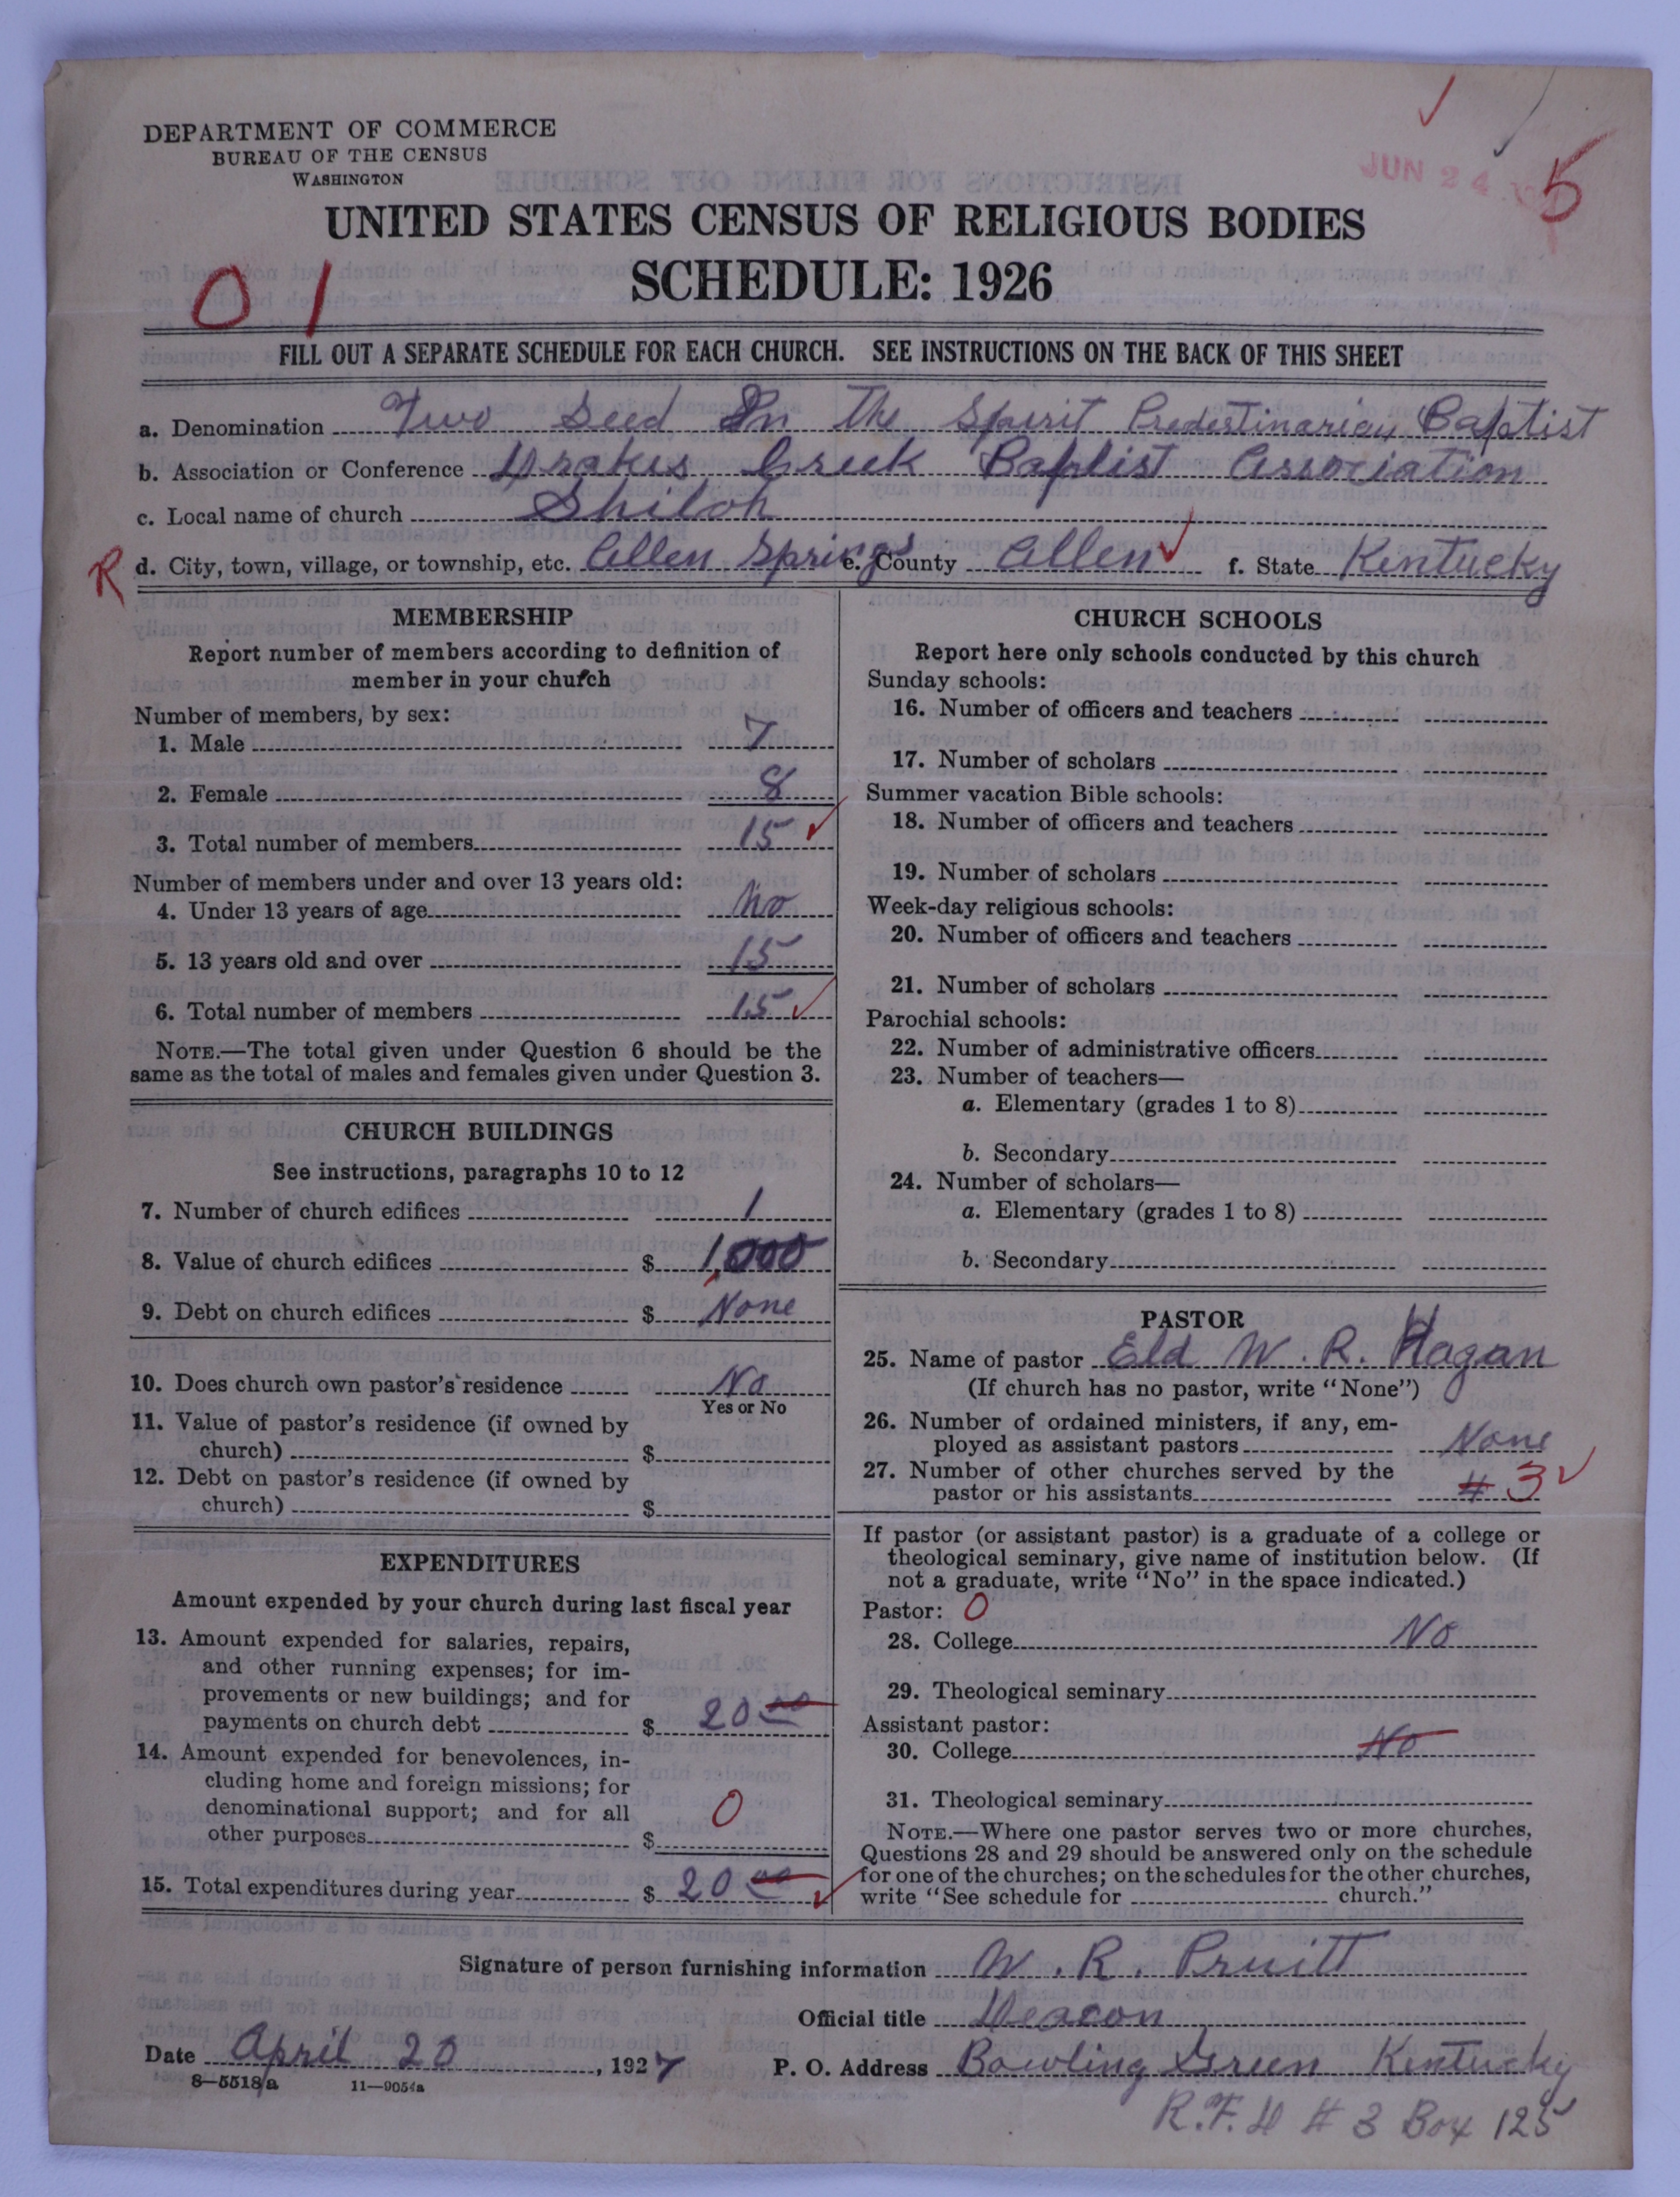 DEPARTMENT OF COMMERCE
BUREAU OF THE CENSUS
WASHINGTON
JUN 24
5
UNITED STATES CENSUS OF RELIGIOUS BODIES
SCHEDULE: 1926
01
FILL OUT A SEPARATE SCHEDULE FOR EACH CHURCH. SEE INSTRUCTIONS ON THE BACK OF THIS SHEET
a. Denomination Two Seed In The Spirit Predestinarian Baptist
b. Association or Conference Drakes Creek Baptist Association
c. Local name of church Shiloh
R d. City, town, village, or township, etc. Allen Springs e. County Allen f. State Kentucky
MEMBERSHIP
Report number of members according to definition of
member in your church
Number of members, by sex:
1. Male 7
2. Female 8
3. Total number of members 15
Number of members under and over 13 years old:
4. Under 13 years of age No
5. 13 years old and over 15
6. Total number of members 15
NOTE.—The total given under Question 6 should be the
same as the total of males and females given under Question 3.
CHURCH BUILDINGS
See instructions, paragraphs 10 to 12
7. Number of church edifices 1
8. Value of church edifices $ 1,000
9. Debt on church edifices $ None
10. Does church own pastor's residence No
Yes or No
11. Value of pastor's residence (if owned by
church) $
12. Debt on pastor's residence (if owned by
church) $
EXPENDITURES
Amount expended by your church during last fiscal year
13. Amount expended for salaries, repairs,
and other running expenses; for im-
provements or new buildings; and for
payments on church debt $ 20 00
14. Amount expended for benevolences, in-
cluding home and foreign missions; for
denominational support; and for all
other purposes $ 0
15. Total expenditures during year $ 20 00
CHURCH SCHOOLS
Report here only schools conducted by this church
Sunday schools:
16. Number of officers and teachers
17. Number of scholars
Summer vacation Bible schools:
18. Number of officers and teachers
19. Number of scholars
Week-day religious schools:
20. Number of officers and teachers
21. Number of scholars
Parochial schools:
22. Number of administrative officers
23. Number of teachers—
a. Elementary (grades 1 to 8)
b. Secondary
24. Number of scholars—
a. Elementary (grades 1 to 8)
b. Secondary
PASTOR
25. Name of pastor Eld W. R. Hagan
(If church has no pastor, write "None")
26. Number of ordained ministers, if any, em-
ployed as assistant pastors None
27. Number of other churches served by the
pastor or his assistants 3
If pastor (or assistant pastor) is a graduate of a college or
theological seminary, give name of institution below. (If
not a graduate, write "No" in the space indicated.)
Pastor: 0
28. College No
29. Theological seminary
Assistant pastor:
30. College No
31. Theological seminary
NOTE.—Where one pastor serves two or more churches,
Questions 28 and 29 should be answered only on the schedule
for one of the churches; on the schedules for the other churches,
write "See schedule for church."
Signature of person furnishing information W. R. Pruitt
Official title Deacon
Date April 20, 1927 P. O. Address Bowling Green Kentucky
8—5518a 11—9054a
R.F.D # 3 Box 125